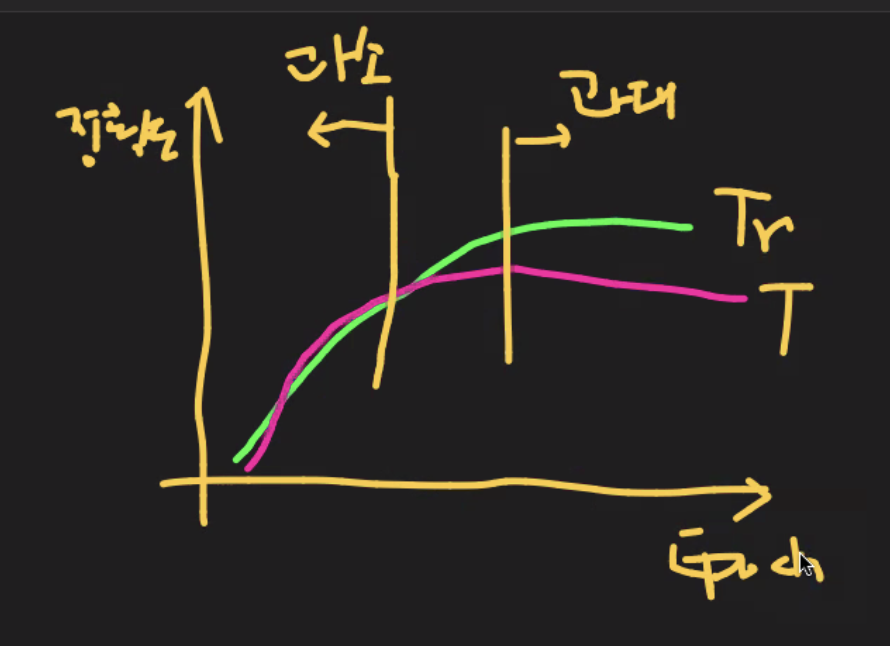 과소
과대
정확도
Tr
T
Epoch